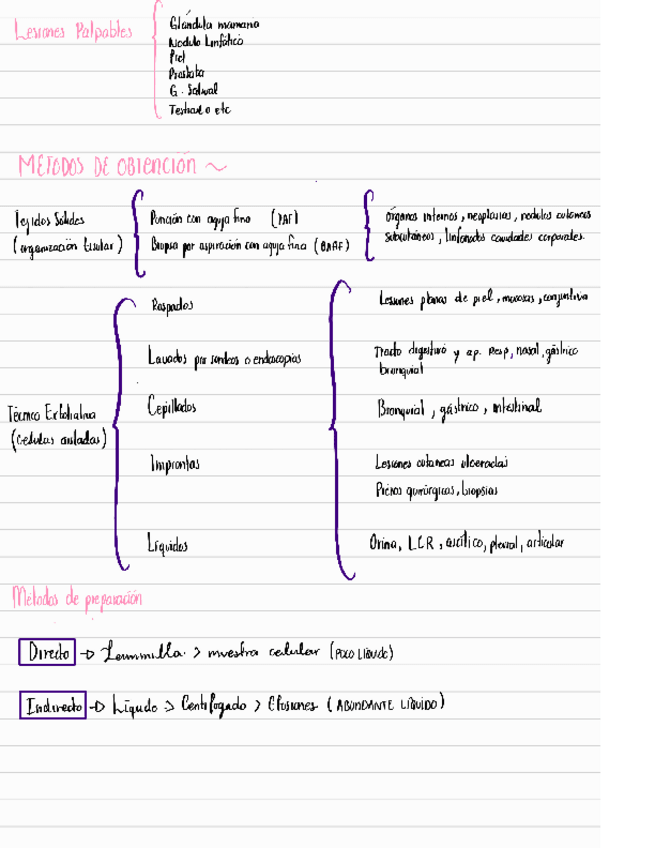 Lesiones Palpables
Glándula mamaria
Nodulo Linfático
Piel
Prostata
G. Salival
Testiculo etc
METODOS DE OBTENCIÓN ~
Tejidos Sólidos
(organización tisular)
Punción con aguja fina (PAF)
Biopsia por aspiración con aguja fina (BAAF)
órganos internos, neoplasias, nodulos cutaneos
subcutáneos, linfonodos cavidades corporales.
Técnica Exfoliativa
(celulas aisladas)
Raspados
Lesiones planas de piel, mucosas, conjuntiva
Lavados por sondeos o endoscopias
Tracto digestivo y ap. Resp, nasal, gástrico
bronquial
Cepillados
Bronquial, gástrico, intestinal
Improntas
Lesiones cutaneas ulceradas
Piezas quirúrgicas, biopsias
Líquidos
Orina, LCR, ascítico, pleural, articular
Métodos de preparación
Directo → Laminilla > muestra celular (POCO LÍQUIDO)
Indirecto → Líquido > Centrifugado > Efusiones (ABUNDANTE LÍQUIDO)